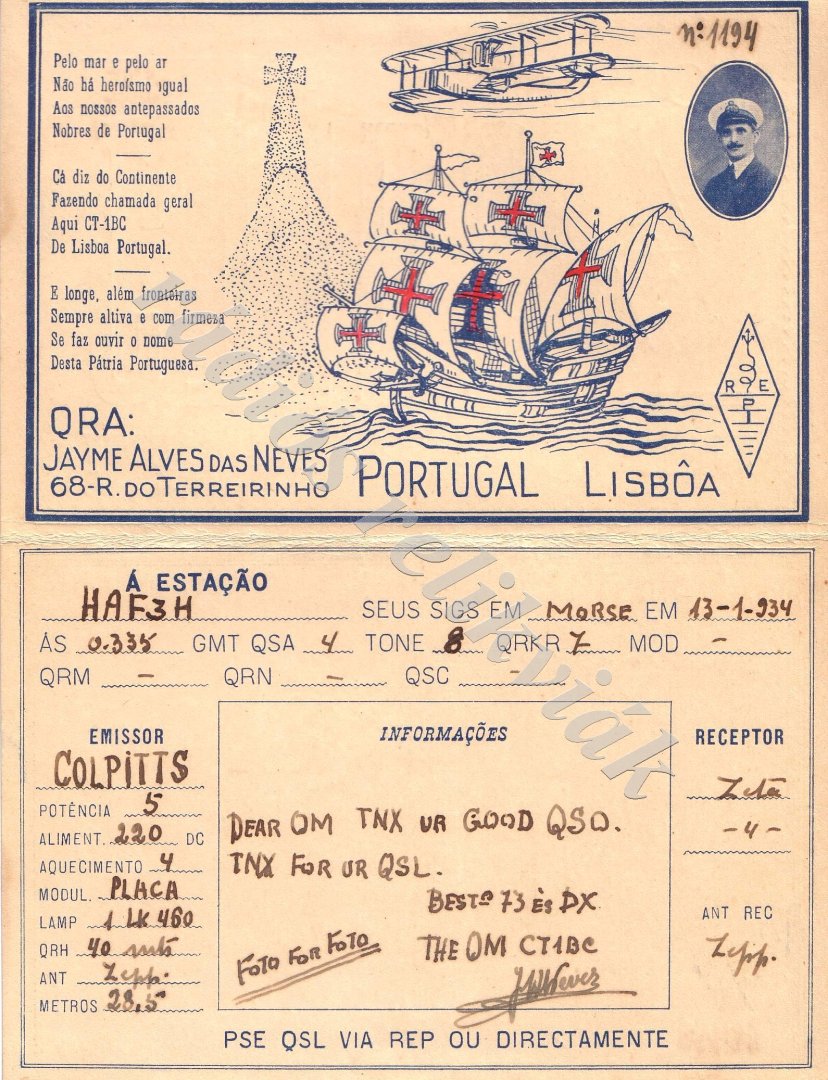 nº 1194
Pelo mar e pelo ar
Não há heroísmo igual
Aos nossos antepassados
Nobres de Portugal
Cá diz do Continente
Fazendo chamada geral
Aqui CT-1BC
De Lisboa Portugal.
E longe, além fronteiras
Sempre altiva e com firmeza
Se faz ouvir o nome
Desta Pátria Portuguesa.
R E P
QRA:
JAYME ALVES DAS NEVES
68-R. DO TERREIRINHO
PORTUGAL LISBÔA
Rádiós relikviák
Á ESTAÇÃO
HAF3H SEUS SIGS EM MORSE EM 13-1-934
ÁS 0.335 GMT QSA 4 TONE 8 QRKR 7 MOD -
QRM - QRN - QSC -
EMISSOR
COLPITTS
POTÊNCIA 5
ALIMENT. 220 DC
AQUECIMENTO 4
MODUL. PLACA
LAMP 1 LK 460
QRH 40 mts
ANT Zepp.
METROS 28,5
INFORMAÇÕES
DEAR OM TNX UR GOOD QSO.
TNX FOR UR QSL.
BESTº 73 ÈS DX
FOTO FOR FOTO
THE OM CT1BC
RECEPTOR
-4-
ANT REC
Zepp.
PSE QSL VIA REP OU DIRECTAMENTE